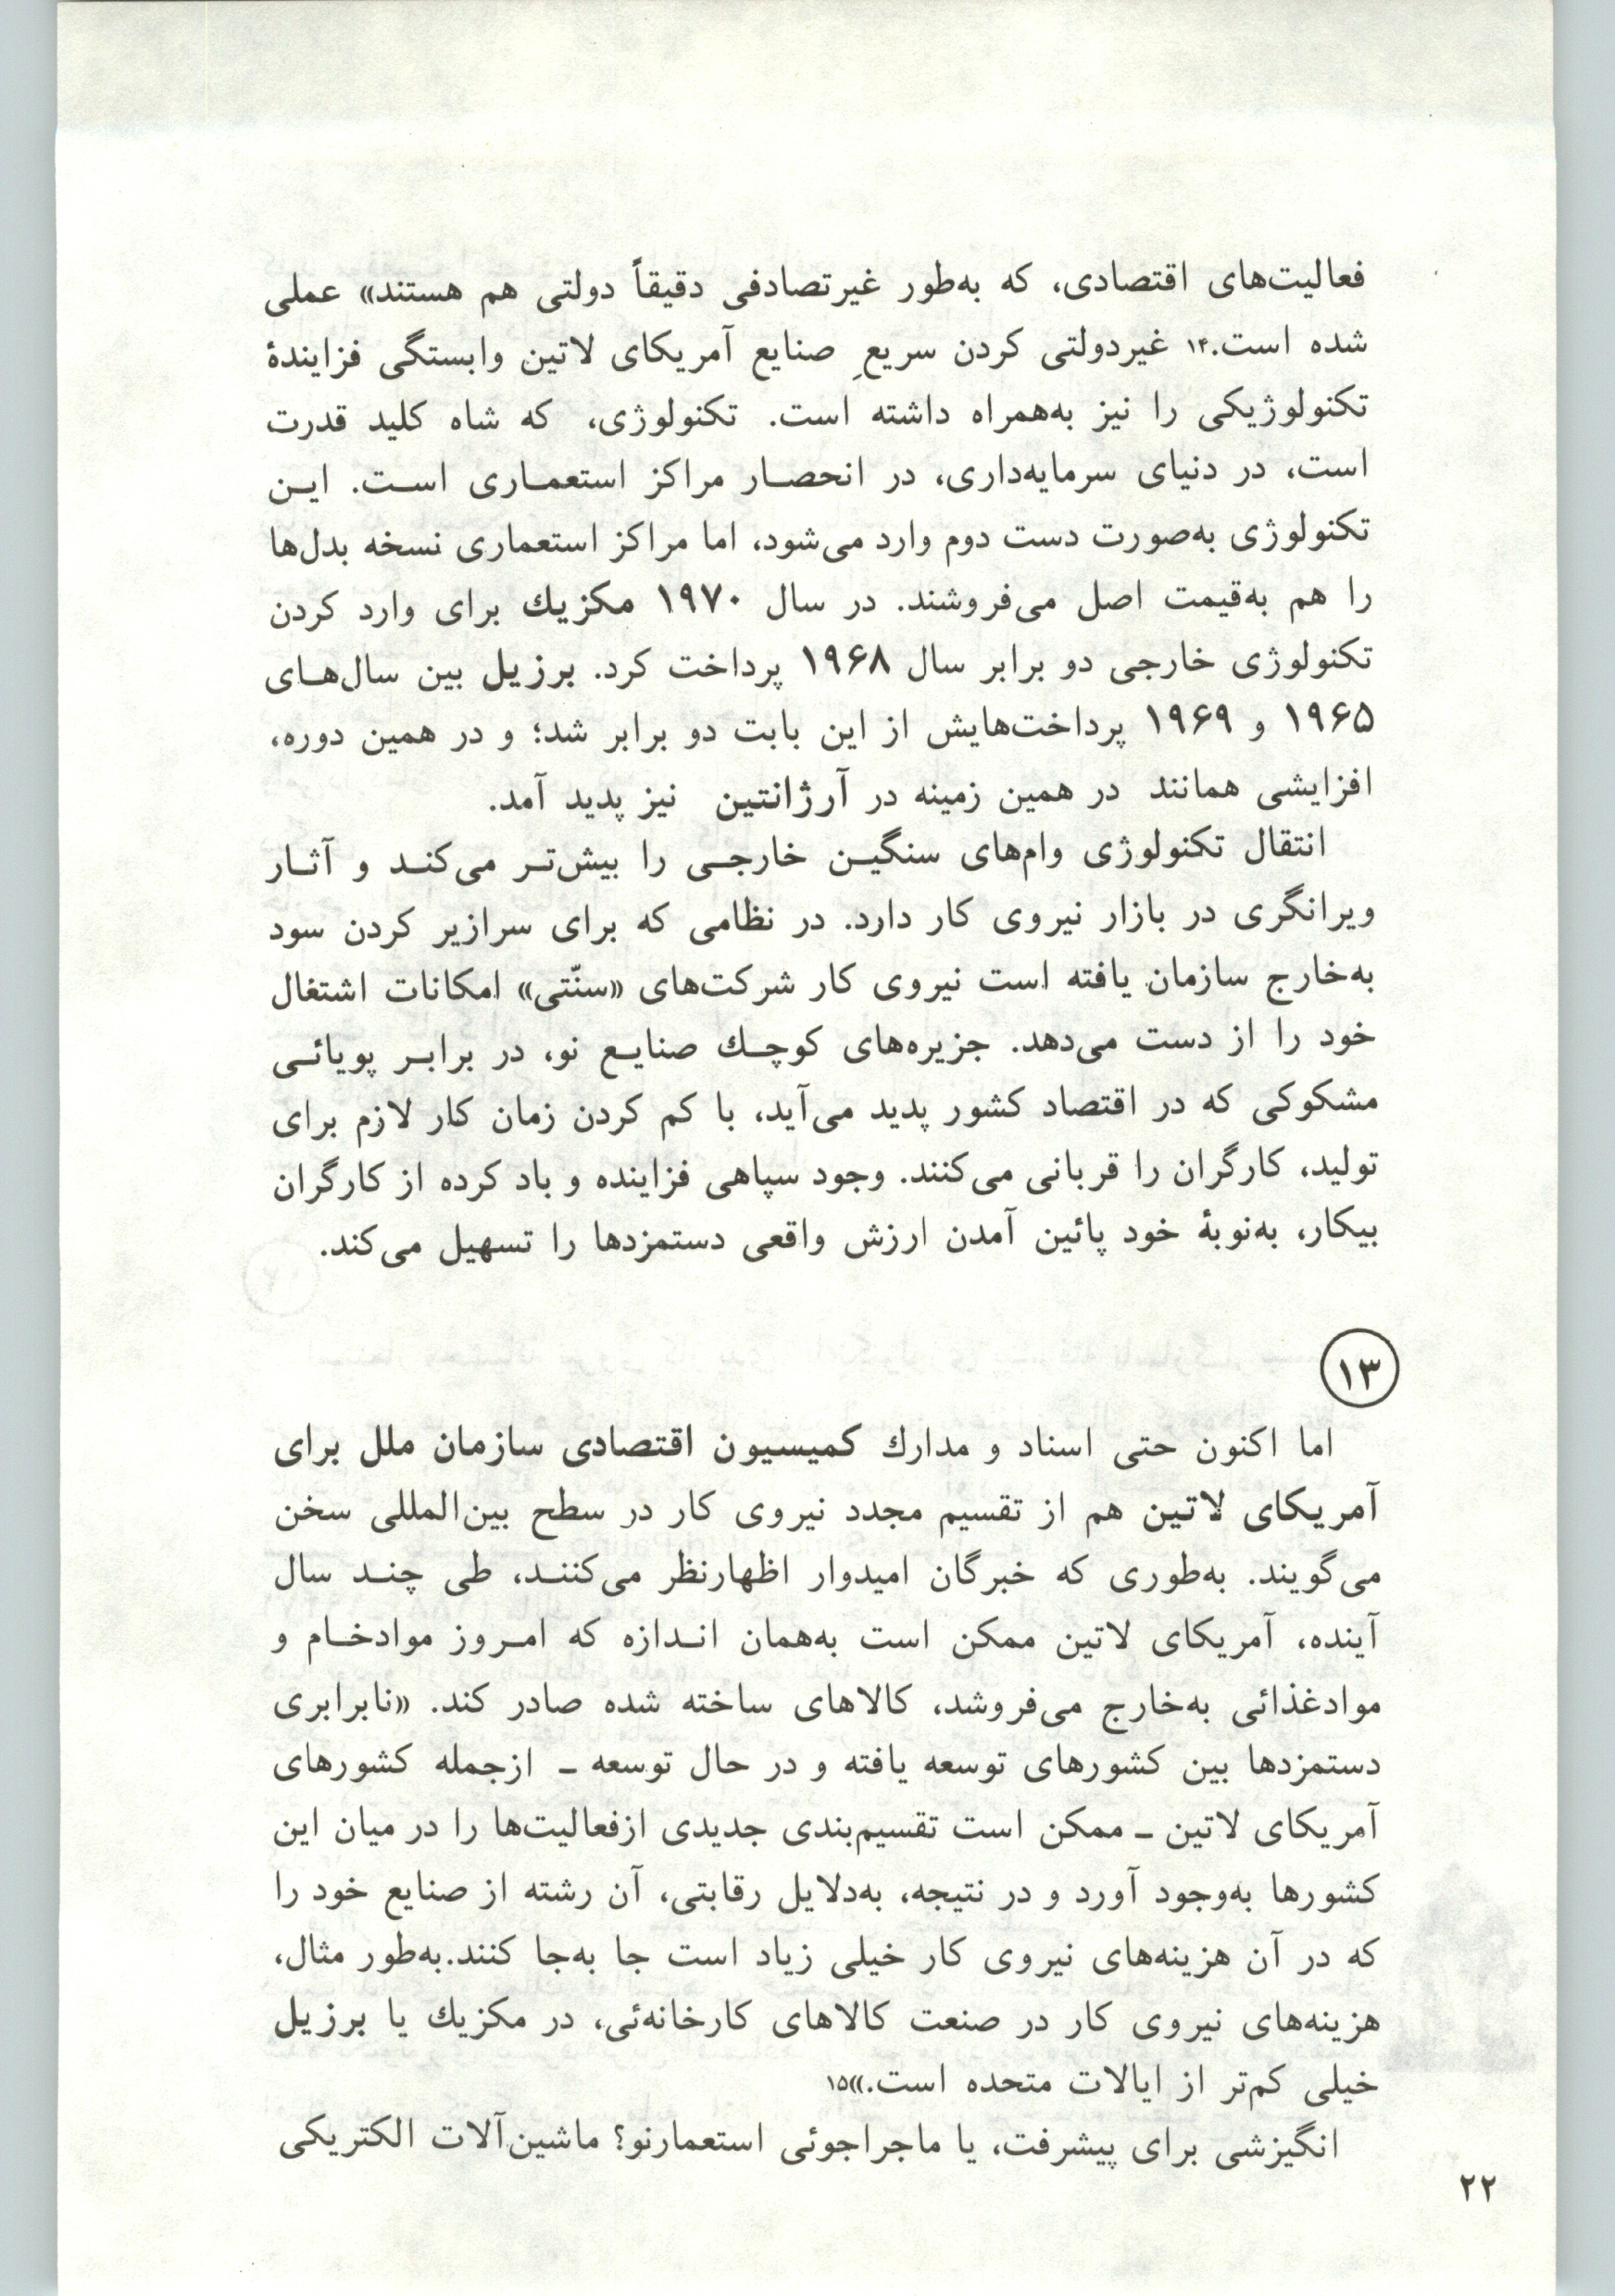 فعالیت‌های اقتصادی، که به‌طور غیرتصادفی دقیقاً دولتی هم هستند» عملی
شده است.۱۴ غیردولتی کردن سریعِ صنایع آمریکای لاتین وابستگی فزایندۀ
تکنولوژیکی را نیز به‌همراه داشته است. تکنولوژی، که شاه کلید قدرت
است، در دنیای سرمایه‌داری، در انحصـار مراکز استعمـاری اسـت. ایـن
تکنولوژی به‌صورت دست دوم وارد می‌شود، اما مراکز استعماری نسخه بدل‌ها
را هم به‌قیمت اصل می‌فروشند. در سال ۱۹۷۰ مکزیك برای وارد کردن
تکنولوژی خارجی دو برابر سال ۱۹۶۸ پرداخت کرد. برزیل بین سال‌هـای
۱۹۶۵ و ۱۹۶۹ پرداخت‌هایش از این بابت دو برابر شد؛ و در همین دوره،
افزایشی همانند در همین زمینه در آرژانتین نیز پدید آمد.
انتقال تکنولوژی وام‌های سنگیـن خارجـی را بیش‌تـر می‌کنـد و آثـار
ویرانگری در بازار نیروی کار دارد. در نظامی که برای سرازیر کردن سود
به‌خارج سازمان یافته است نیروی کار شرکت‌های «سنّتی» امکانات اشتغال
خود را از دست می‌دهد. جزیره‌های کوچـك صنایـع نو، در برابـر پویائـی
مشکوکی که در اقتصاد کشور پدید می‌آید، با کم کردن زمان کار لازم برای
تولید، کارگران را قربانی می‌کنند. وجود سپاهی فزاینده و باد کرده از کارگران
بیکار، به‌نوبۀ خود پائین آمدن ارزش واقعی دستمزدها را تسهیل می‌کند.
۱۳
اما اکنون حتی اسناد و مدارك کمیسیون اقتصادی سازمان ملل برای
آمریکای لاتین هم از تقسیم مجدد نیروی کار در سطح بین‌المللی سخن
می‌گویند. به‌طوری که خبرگان امیدوار اظهارنظر می‌کننـد، طی چنـد سال
آینده، آمریکای لاتین ممکن است به‌همان انـدازه که امـروز موادخـام و
موادغذائی به‌خارج می‌فروشد، کالاهای ساخته شده صادر کند. «نابرابری
دستمزدها بین کشورهای توسعه یافته و در حال توسعه ـ ازجمله کشورهای
آمریکای لاتین ـ ممکن است تقسیم‌بندی جدیدی ازفعالیت‌ها را در میان این
کشورها به‌وجود آورد و در نتیجه، به‌دلایل رقابتی، آن رشته از صنایع خود را
که در آن هزینه‌های نیروی کار خیلی زیاد است جا به‌جا کنند.به‌طور مثال،
هزینه‌های نیروی کار در صنعت کالاهای کارخانه‌ئی، در مکزیك یا برزیل
خیلی کم‌تر از ایالات متحده است.»۱۵
انگیزشی برای پیشرفت، یا ماجراجوئی استعمارنو؟ ماشین‌آلات الکتریکی
۲۲